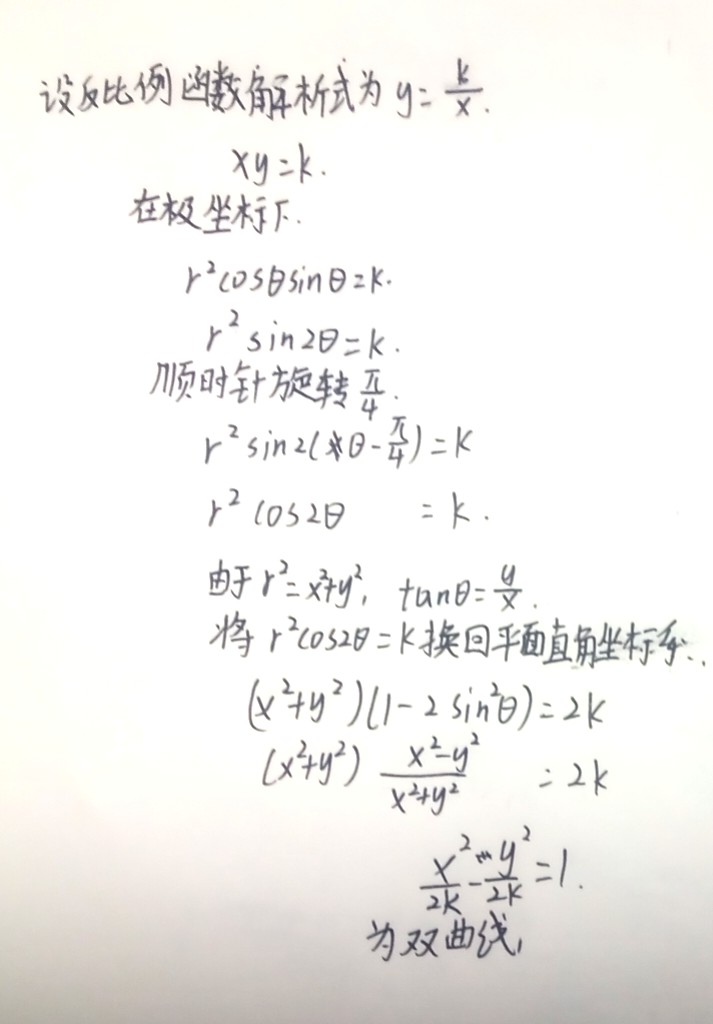 设反比例函数解析式为 y = k/x.
xy = k.
在极坐标下.
r²cosθsinθ = k.
r² sin2θ = k.
顺时针旋转 π/4.
r² sin2(θ - π/4) = k
r² cos2θ = k.
由于 r² = x²+y², tanθ = y/x.
将 r²cos2θ = k 换回平面直角坐标系..
(x²+y²)(1-2sin²θ) = 2k
(x²+y²) (x²-y²)/(x²+y²) = 2k
x²/2k - y²/2k = 1.
为双曲线,